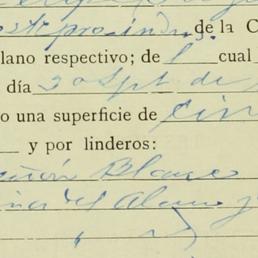 de la C
lano respectivo; de l cual
día 30 Spt. de
o una superficie de Cin
y por linderos:
Blanco
del Alamo y